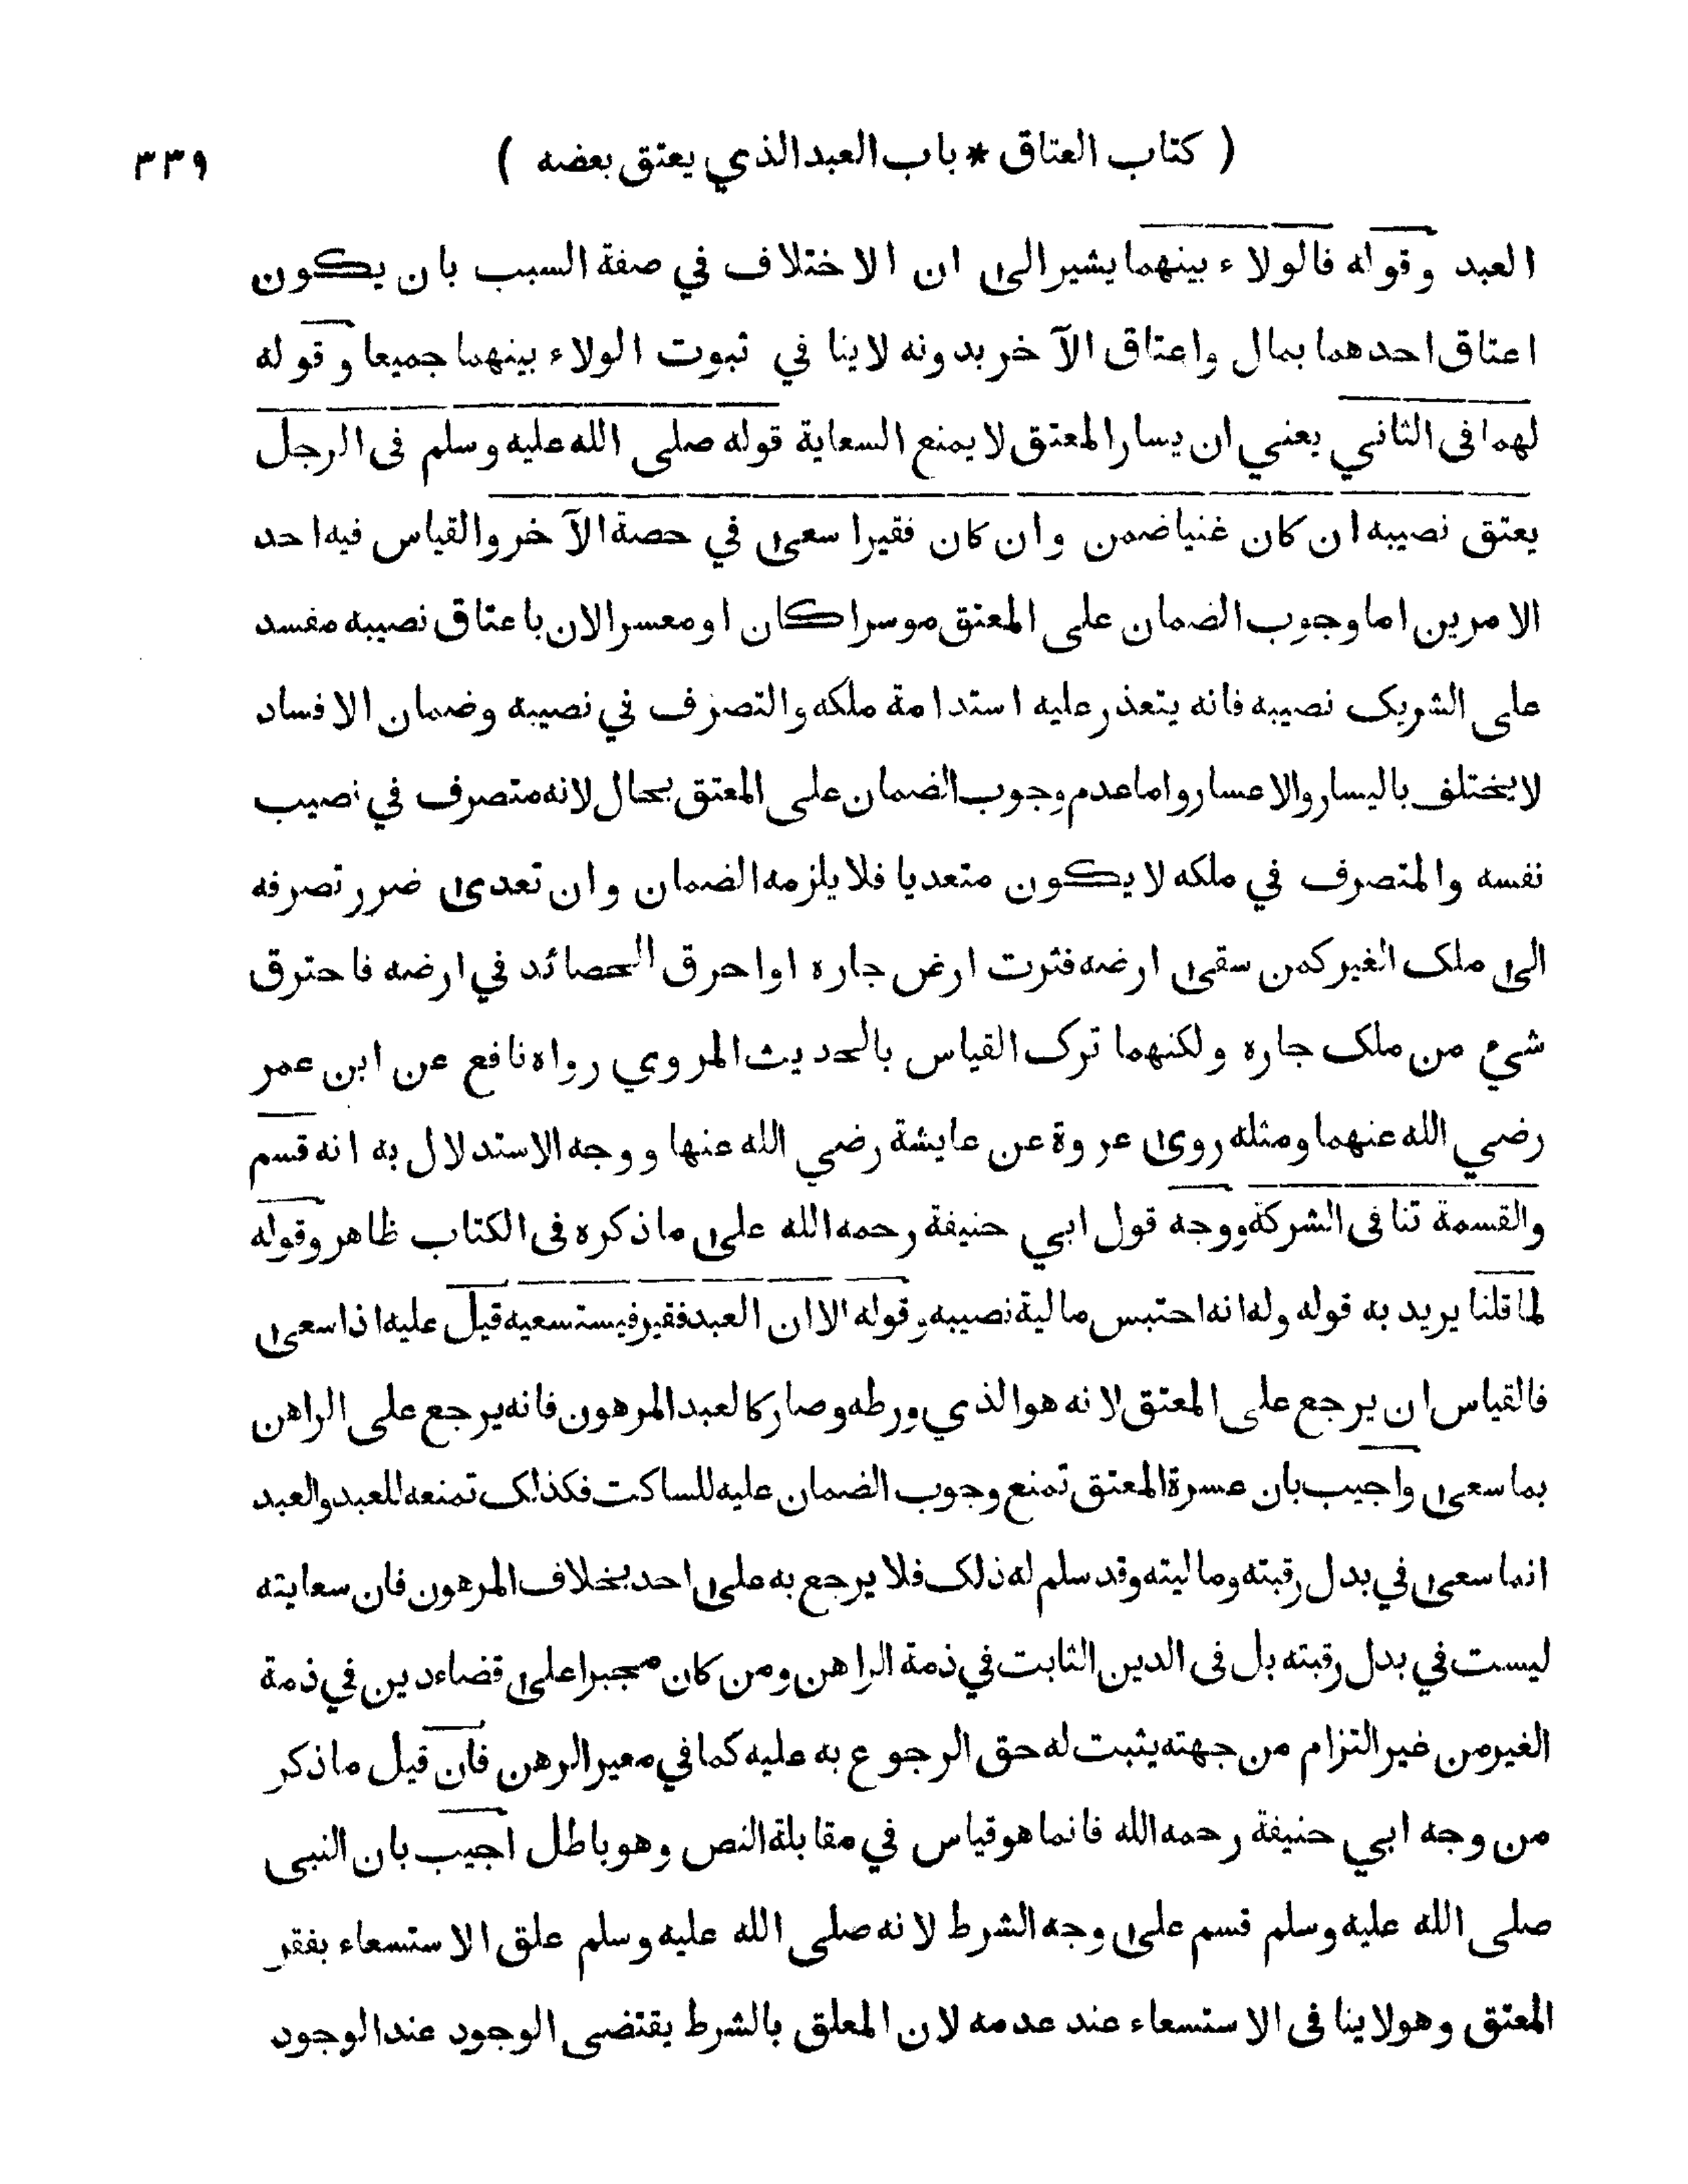 ( كتاب العتاق * باب العبد الذي يعتق بعضه ) ٣٣٩
العبد وقوله فالولاء بينهما يشير الى ان الاختلاف في صفة السبب بان يكون
اعتاق احدهما بمال واعتاق الآخر بدونه لاينا في ثبوت الولاء بينهما جميعا وقوله
لهما فى الثاني يعني ان يسار المعتق لا يمنع السعاية قوله صلى الله عليه وسلم فى الرجل
يعتق نصيبه ان كان غنيا ضمن وان كان فقيرا سعى في حصة الآخر والقياس فيه احد
الامرين اما وجوب الضمان على المعتق موسرا كان او معسرا لان باعتاق نصيبه مفسد
على الشريك نصيبه فانه يتعذر عليه استدامة ملكه والتصرف في نصيبه وضمان الافساد
لا يختلف باليسار والاعسار واما عدم وجوب الضمان على المعتق بحال لانه متصرف في نصيب
نفسه والمتصرف في ملكه لا يكون متعديا فلا يلزمه الضمان وان تعدى ضرر تصرفه
الى ملك الغير كمن سقى ارضه فنزت ارض جاره او احرق الحصائد في ارضه فاحترق
شيء من ملك جاره ولكنهما ترك القياس بالحديث المروي رواه نافع عن ابن عمر
رضي الله عنهما ومثله روى عروة عن عايشة رضي الله عنها ووجه الاستدلال به انه قسم
والقسمة تنا فى الشركة ووجه قول ابي حنيفة رحمه الله على ما ذكره فى الكتاب ظاهر وقوله
لما قلنا يريد به قوله وله انه احتبس مالية نصيبه وقوله الا ان العبد فقير فيستسعيه قيل عليه اذا سعى
فالقياس ان يرجع على المعتق لانه هو الذي ورطه وصار كالعبد المرهون فانه يرجع على الراهن
بما سعى واجيب بان عسرة المعتق تمنع وجوب الضمان عليه للساكت فكذلك تمنعه للعبد والعبد
انما سعى في بدل رقبته وماليته وقد سلم له ذلك فلا يرجع به على احد بخلاف المرهون فان سعايته
ليست في بدل رقبته بل فى الدين الثابت في ذمة الراهن ومن كان مجبرا على قضاء دين في ذمة
الغير من غير التزام من جهته يثبت له حق الرجوع به عليه كما في معير الرهن فان قيل ما ذكر
من وجه ابي حنيفة رحمه الله فانما هو قياس في مقابلة النص وهو باطل اجيب بان النبى
صلى الله عليه وسلم قسم على وجه الشرط لانه صلى الله عليه وسلم علق الاستسعاء بفقر
المعتق وهو لاينا فى الاستسعاء عند عدمه لان المعلق بالشرط يقتضى الوجود عند الوجود